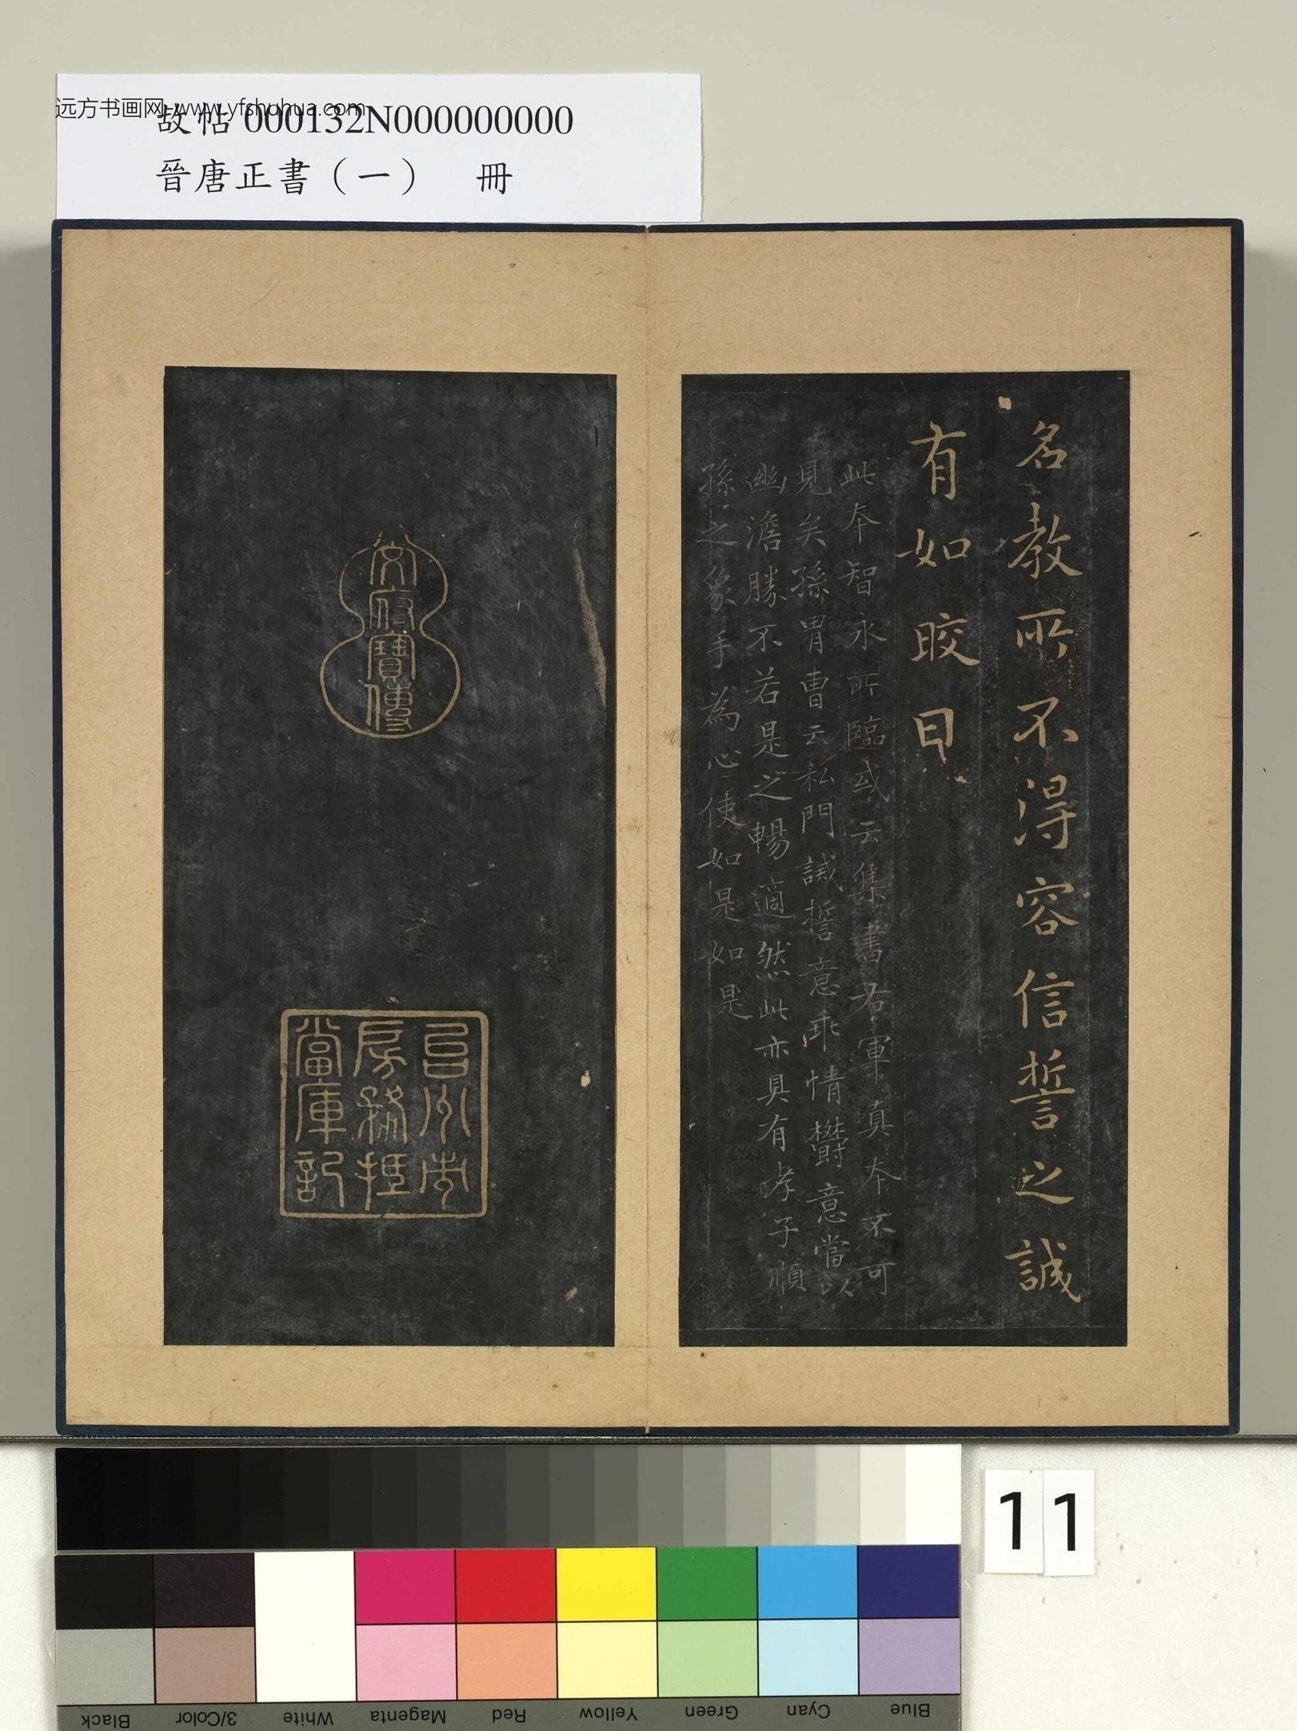 远方书画网 www.yfshuhua.com
故帖 000132N000000000
晉唐正書（一）　冊
名教所不得容信誓之誠
有如皎日
此本智永所臨或云集書右軍真本不可
見矣孫胄曹云私門誡誓意乖情欝意當以
幽澹勝不若是之暢適然此亦具有孝子順
孫之象手為心使如是如是
府寶傳
房務抵
當庫記
11
Black
3/Color
White
Magenta
Red
Yellow
Green
Cyan
Blue